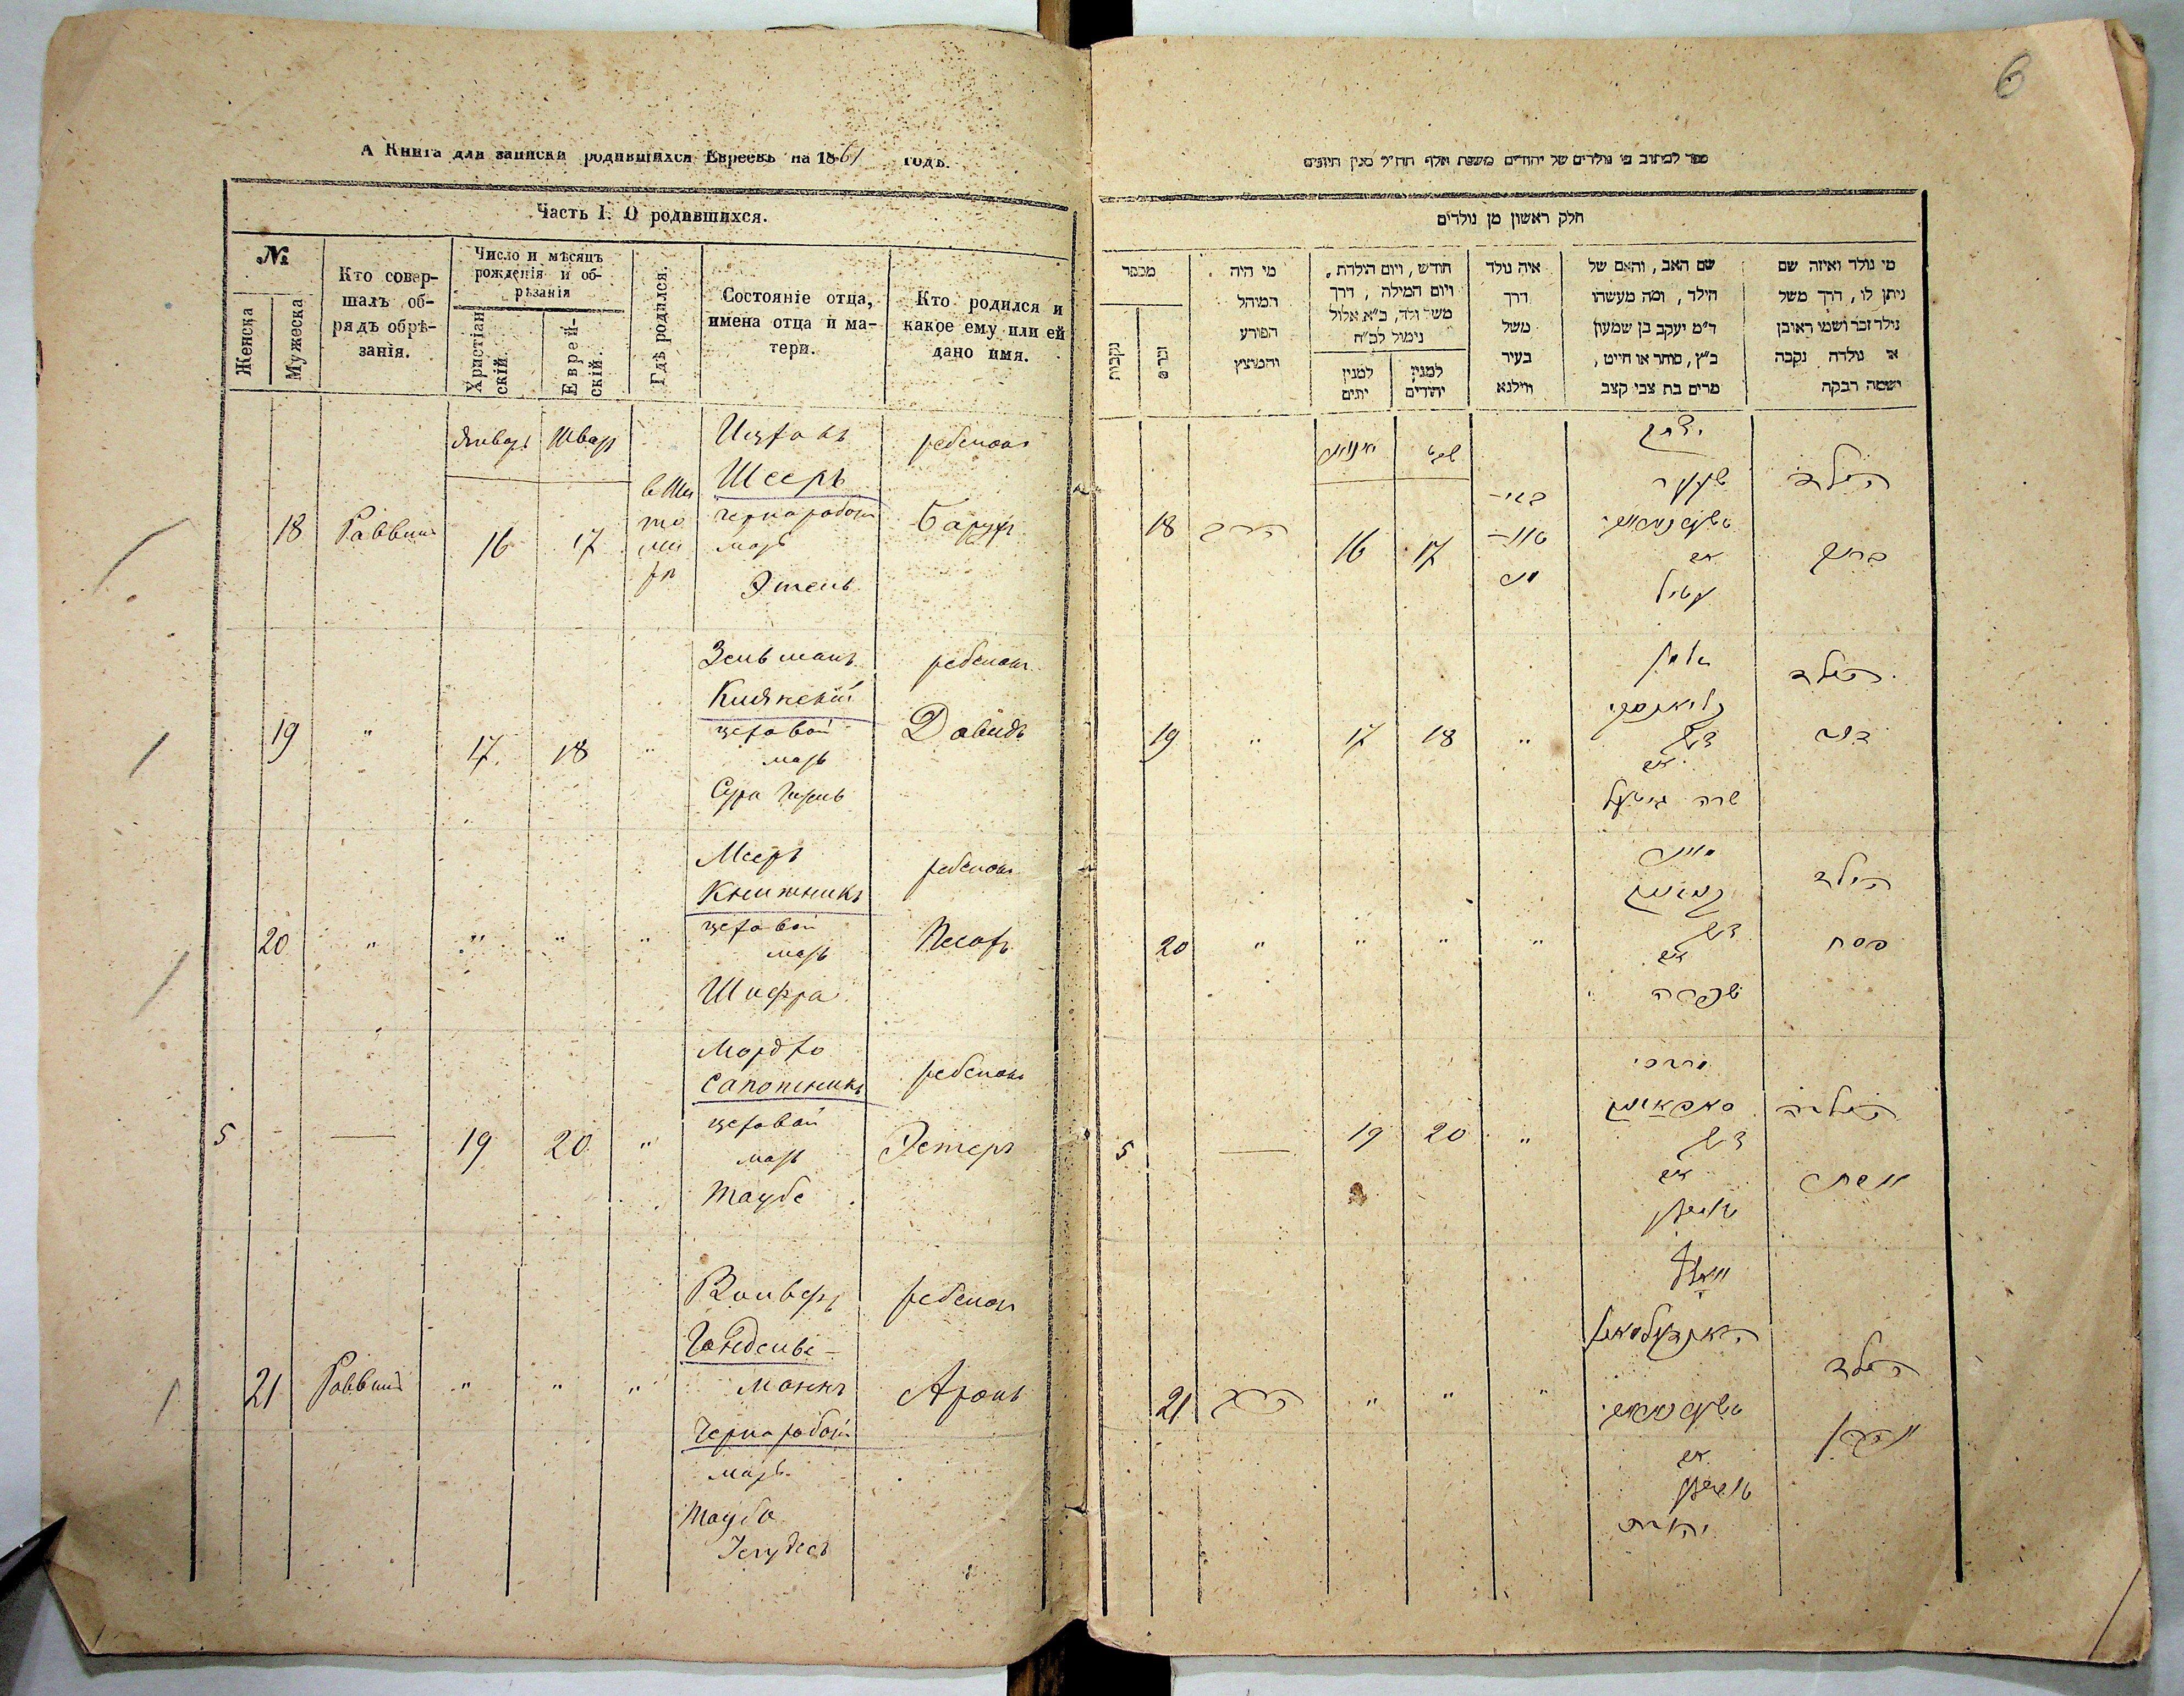 А Книга для записки родившихся Евреевъ на 1861 годъ.
Часть I. О родившихся.
№
Женска
Мужеска
Кто совер-
шалъ об-
рядъ обрѣ-
занія.
Число и мѣсяцъ
рожденія и об-
рѣзанія
Христіан-
скій.
Еврей-
скій.
Гдѣ родился.
Состояніе отца,
имена отца и ма-
тери.
Кто родился и
какое ему или ей
дано имя.
Январь Шват
18 Раввинъ 16 17
в Жи
то
ми
рѣ
Ицхокъ
Шееръ
чернорабоч
мать
Этель
ребенокъ
Барухъ
19 " 17 18 "
Зельманъ
Клиянскій
цеховой
мать
Сура
ребенокъ
Давидъ
20 " " " "
Мееръ
Книжникъ
цеховой
мать
Шифра
ребенокъ
Песахъ
5 — 19 20 "
Мордхо
Сапожникъ
цеховой
мать
Таубе
ребенокъ
Эстеръ
21 Раввинъ " " "
Вольфъ
Гондельс-
манъ
Чернорабоч
мать
Таубе
ребенокъ
Аронъ
6
ספר לכתוב בו נולדים של יהודים משנת אלף תת״ל מנין היונים
חלק ראשון מן נולדים
מי נולד ואיזה שם
ניתן לו, דרך משל
נולד זכר ושמו ראובן
או נולדה נקבה
ושמה רבקה
שם האב, והאם של
הילד, ומה מעשהו
ד״מ יעקב בן שמעון
כ״ץ, סוחר או חייט,
מרים בת צבי קצב
איה נולד
דרך
משל
בעיר
ווילנא
חודש, ויום הולדת,
ויום המילה, דרך
משל ולד, ב״א אלול
נימול לכ״ח
למנין
יהודים
למנין
יונים
מי היה
המוהל
הפורע
והמוצץ
מספר
זכרים
נקבות
יצחק
שעער
אם
עטיל
הילד
ברוך
שבט
ינואר
18 הרב 16 17
זלמן
קליאנסקי
אם
שרה
הילד
דוד
19 " 17 18 "
מאיר
אם
שפרה
הילד
פסח
20 " " " "
מרדכי
אם
הילדה
אסתר
5 — 19 20 "
וואלף
אם
הילד
אהרן
21 הרב " " "